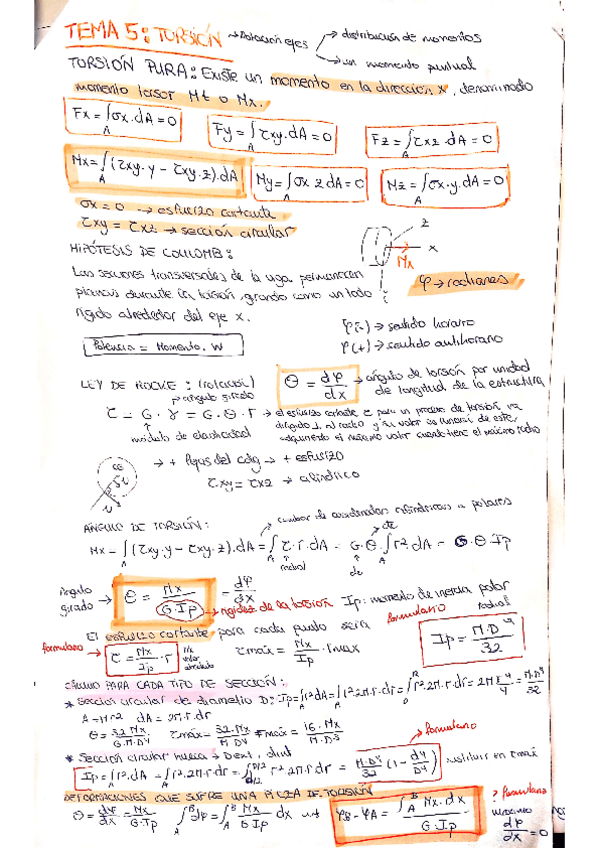 TEMA 5: TORSIÓN → Rotación ejes → distribución de momentos
→ un momento puntual
TORSIÓN PURA: Existe un momento en la dirección x, denominado
momento torsor Mt o Mx.
Fx = ∫A σx.dA = 0   Fy = ∫A τxy.dA = 0   Fz = ∫A τxz.dA = 0
Mx = ∫A (τxy.y - τxy.z).dA   My = ∫A σx z dA = 0   Mz = ∫A σx.y.dA = 0
σx = 0 → esfuerzo cortante
τxy = τxz → sección circular
z
x
Mx
HIPÓTESIS DE COULOMB:
φ → radianes
Las secciones transversales de la viga permanecen
planas durante la torsión, girando como un todo
rígido alrededor del eje x.
φ(-) → sentido horario
φ(+) → sentido antihorario
Potencia = Momento. W
LEY DE HOOKE: (rotación)
θ = dφ/dx → ángulo de torsión por unidad de longitud de la estructura
ángulo girado
τ = G · γ = G · θ · r → el esfuerzo cortante τ para un proceso de torsión va
dirigido ⊥ al radio y su valor es función de este,
adquiriendo el máximo valor cuando tiene el máximo radio
módulo de elasticidad
→ + lejos del cdg → + esfuerzo
τxy = τxz → cilíndrico
cambio de coordenadas cilíndricas a polares
ÁNGULO DE TORSIÓN:
Mx = ∫A (τxy.y - τxy.z).dA = ∫A τ.r.dA = G.θ.∫A r² dA = G.θ.Ip
radial
cte
cte
ángulo girado → θ = Mx / G.Ip = dφ/dx
→ rigidez de la torsión   Ip: momento de inercia polar
radial
El esfuerzo cortante para cada punto será
formulario
formulario → τ = Mx/Ip · r   Mx valor absoluto   τmáx = Mx/Ip · rmax
Ip = π.D⁴/32
CÁLCULO PARA CADA TIPO DE SECCIÓN:
* Sección circular de diametro D: Ip = ∫A r² dA = ∫A r² 2π.r.dr = ∫0^R r² 2π.r.dr = 2π r⁴/4 = π.D⁴/32
A = πr²   dA = 2π.r.dr
θ = 32 Mx / G.π.D⁴   τmáx = 32.Mx / π.D⁴ · rmáx = 16.Mx / π.D³
→ formulario
* Sección circular hueca → Dext, dint
Ip = ∫A r².dA = ∫A r² 2π.r.dr = ∫d/2^D/2 r² 2π r dr = π.D⁴/32 (1 - d⁴/D⁴) sustituir en τmáx
DEFORMACIONES QUE SUFRE UNA PIEZA DE TORSIÓN
? formulario
θ = dφ/dx = Mx / G.Ip   ∫A^B dφ = ∫A^B Mx / G Ip dx   φB - φA = ∫A^B Mx.dx / G.Ip
máximo
dφ/dx = 0